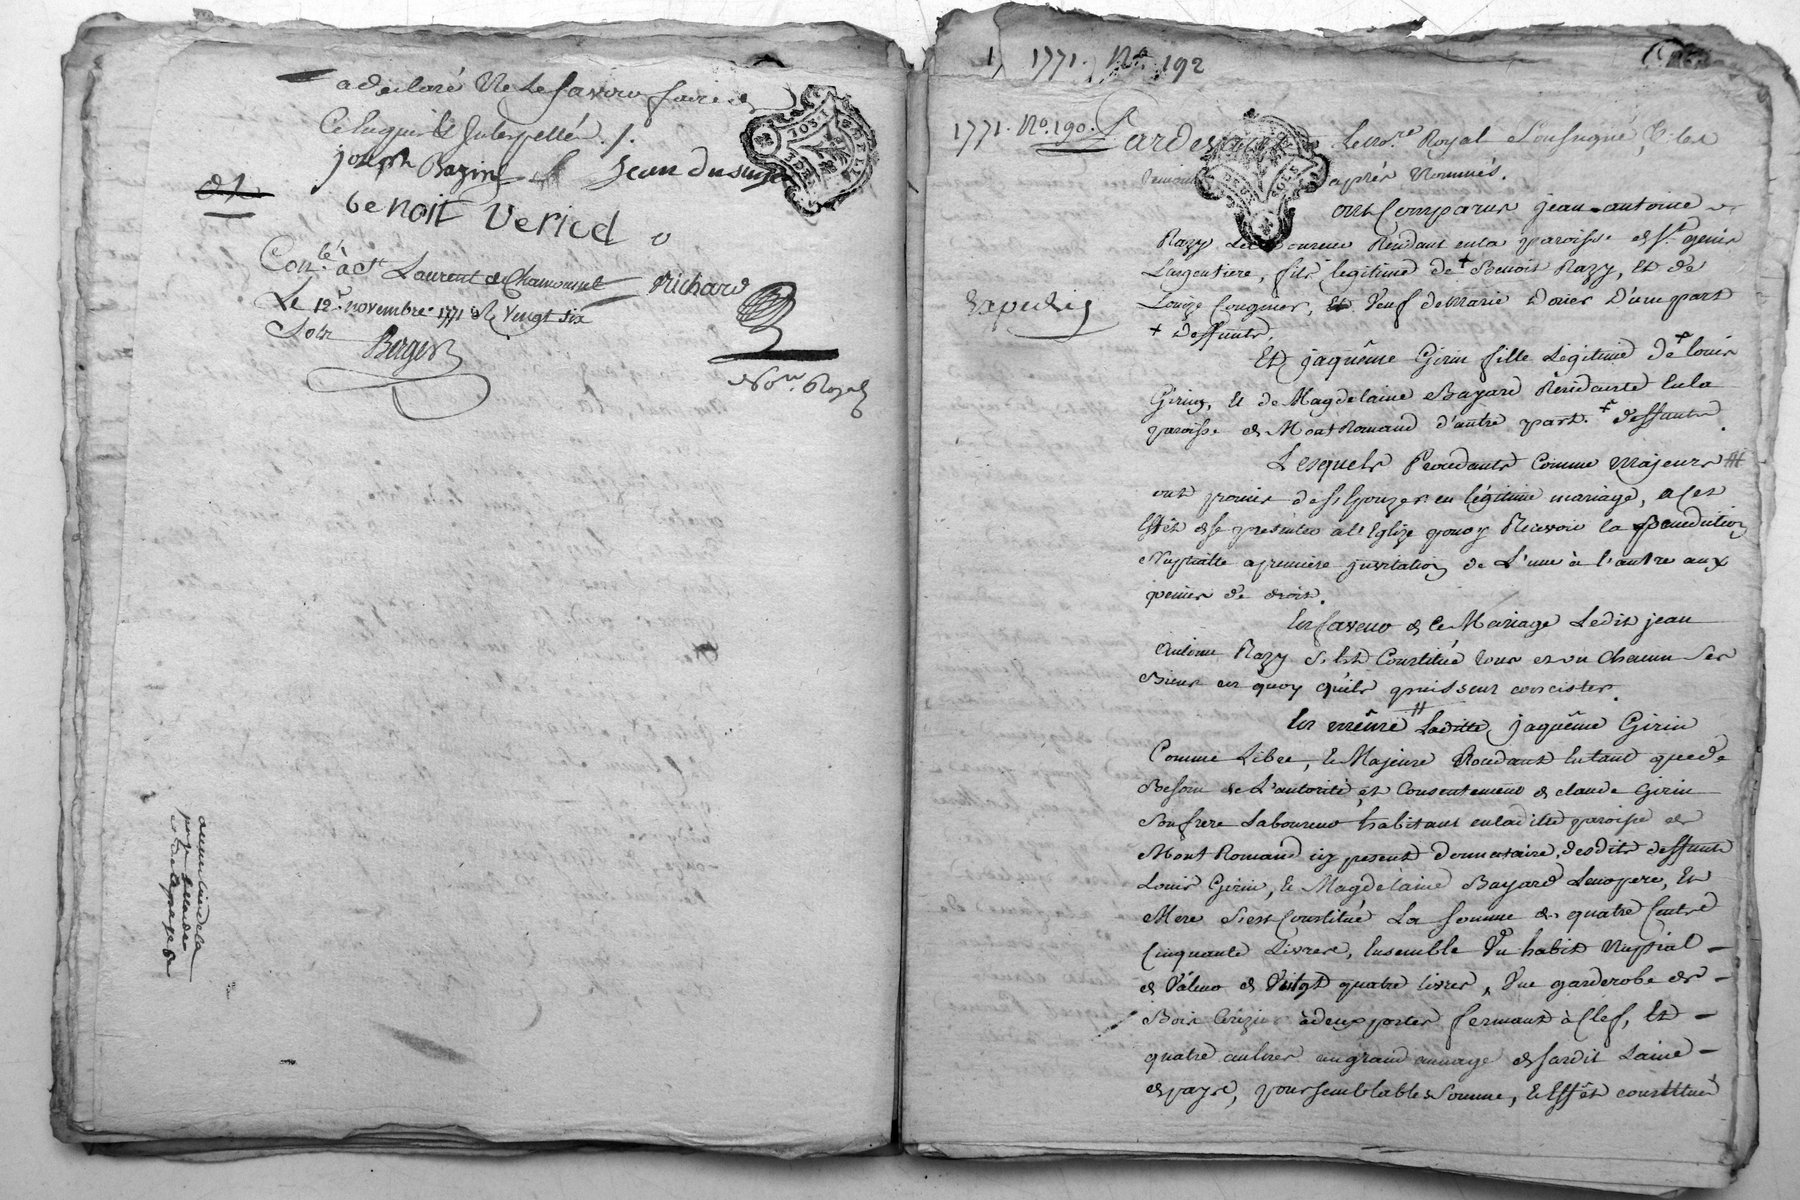 a declaré Ne Le savoir faire de
Ce Enquis & Interpellé ./.
joseph Bazin jean dusurge
benoit Vericel
Con.lé à St Laurent de Chamousset Richard
Le 12e novembre 1771 R. Vingt six
Sols
Berger
No.re Royal
1771. No. 192
1771. No. 190. Pardevant Le No.re Royal Soussigné, & les
Temoins après Nommés.
ont Comparus jean antoine
Razy Laboureur Residant en la paroisse de St. genis
Largentiere, fils legitime de + Benoit Razy, Et de
Expedié
Louise Cougnier, Et Veuf de Marie Doriee D'une part
+ deffunts.
Et jaquême Girin fille Légitime de + louis
Girin, & de Magdelaine Bayard Résidante En la
paroisse de Mont Romand d'autre part. + deffunts
Lesquels Procedants Comme Majeurs #
ont promis de S'Epouzer en légitime mariage, a Cet
Effêt de se presenter a l'Eglize pour y Recevoir la Benediction
Nuptialle a premiere invitation de L'une à l'autre aux
peines de droit.
En faveur de Ce Mariage Ledit jean
Antoine Razy S'Est Constitué tous et un Chacun Ses
Biens en quoy qu'ils puissent concister.
En mêure Laditte jaquême Girin
Comme Libre, & Majeure Procedant En tant que de
Besoin de L'autorité et Consentement de claude Girin
Son frere Laboureur habitant en laditte paroisse de
Mont Romand icy present donnataire, desdits deffunts
Louis Girin, & Magdelaine Bayard Leur pere, Et
Mere S'est Constitué La Somme de quatre Cents
Cinquante Livres, Ensemble Un habit Nuptial
de Valeur de Vingt quatre livres, Une garderobe de
Bois Cerizier à deux portes fermant à Clef, Et
quatre aulnes en grand aunage de sardit Laine
de pays, pour semblable Somme, & Effêt constitué